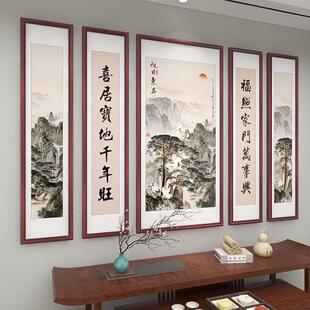 福照家門萬事興
旭日東昇
喜居寶地千年旺